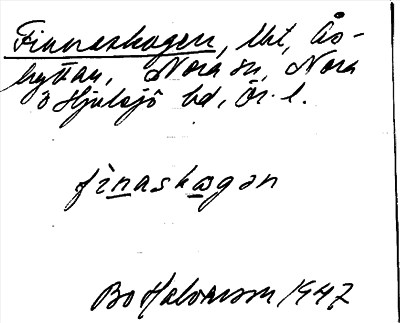 Finnaskogen, lht, Ås-
hyttan, Nora sn, Nora
o Hjulsjö bd, Ör. l.
fìnaskogən
Bo Halvarson 1947